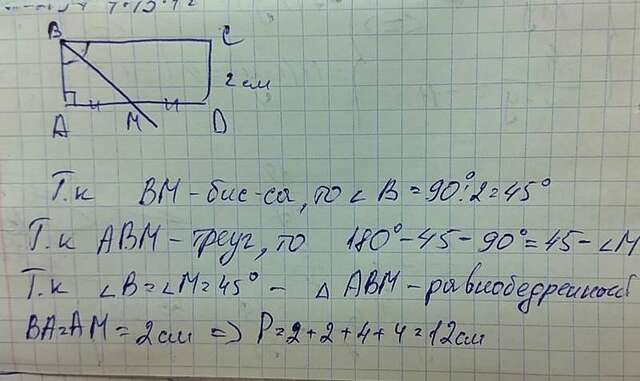 B C
2 см
A M D
Т.к BM - бис-са, то ∠B = 90°:2 = 45°
Т.к ABM - треуг, то 180° - 45 - 90° = 45 - ∠M
Т.к ∠B = ∠M = 45° - △ ABM - равнобедренный
BA = AM = 2 см => P = 2 + 2 + 4 + 4 = 12 см